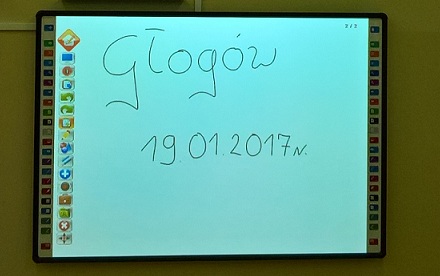 2/2
Głogów
19.01.2017r.